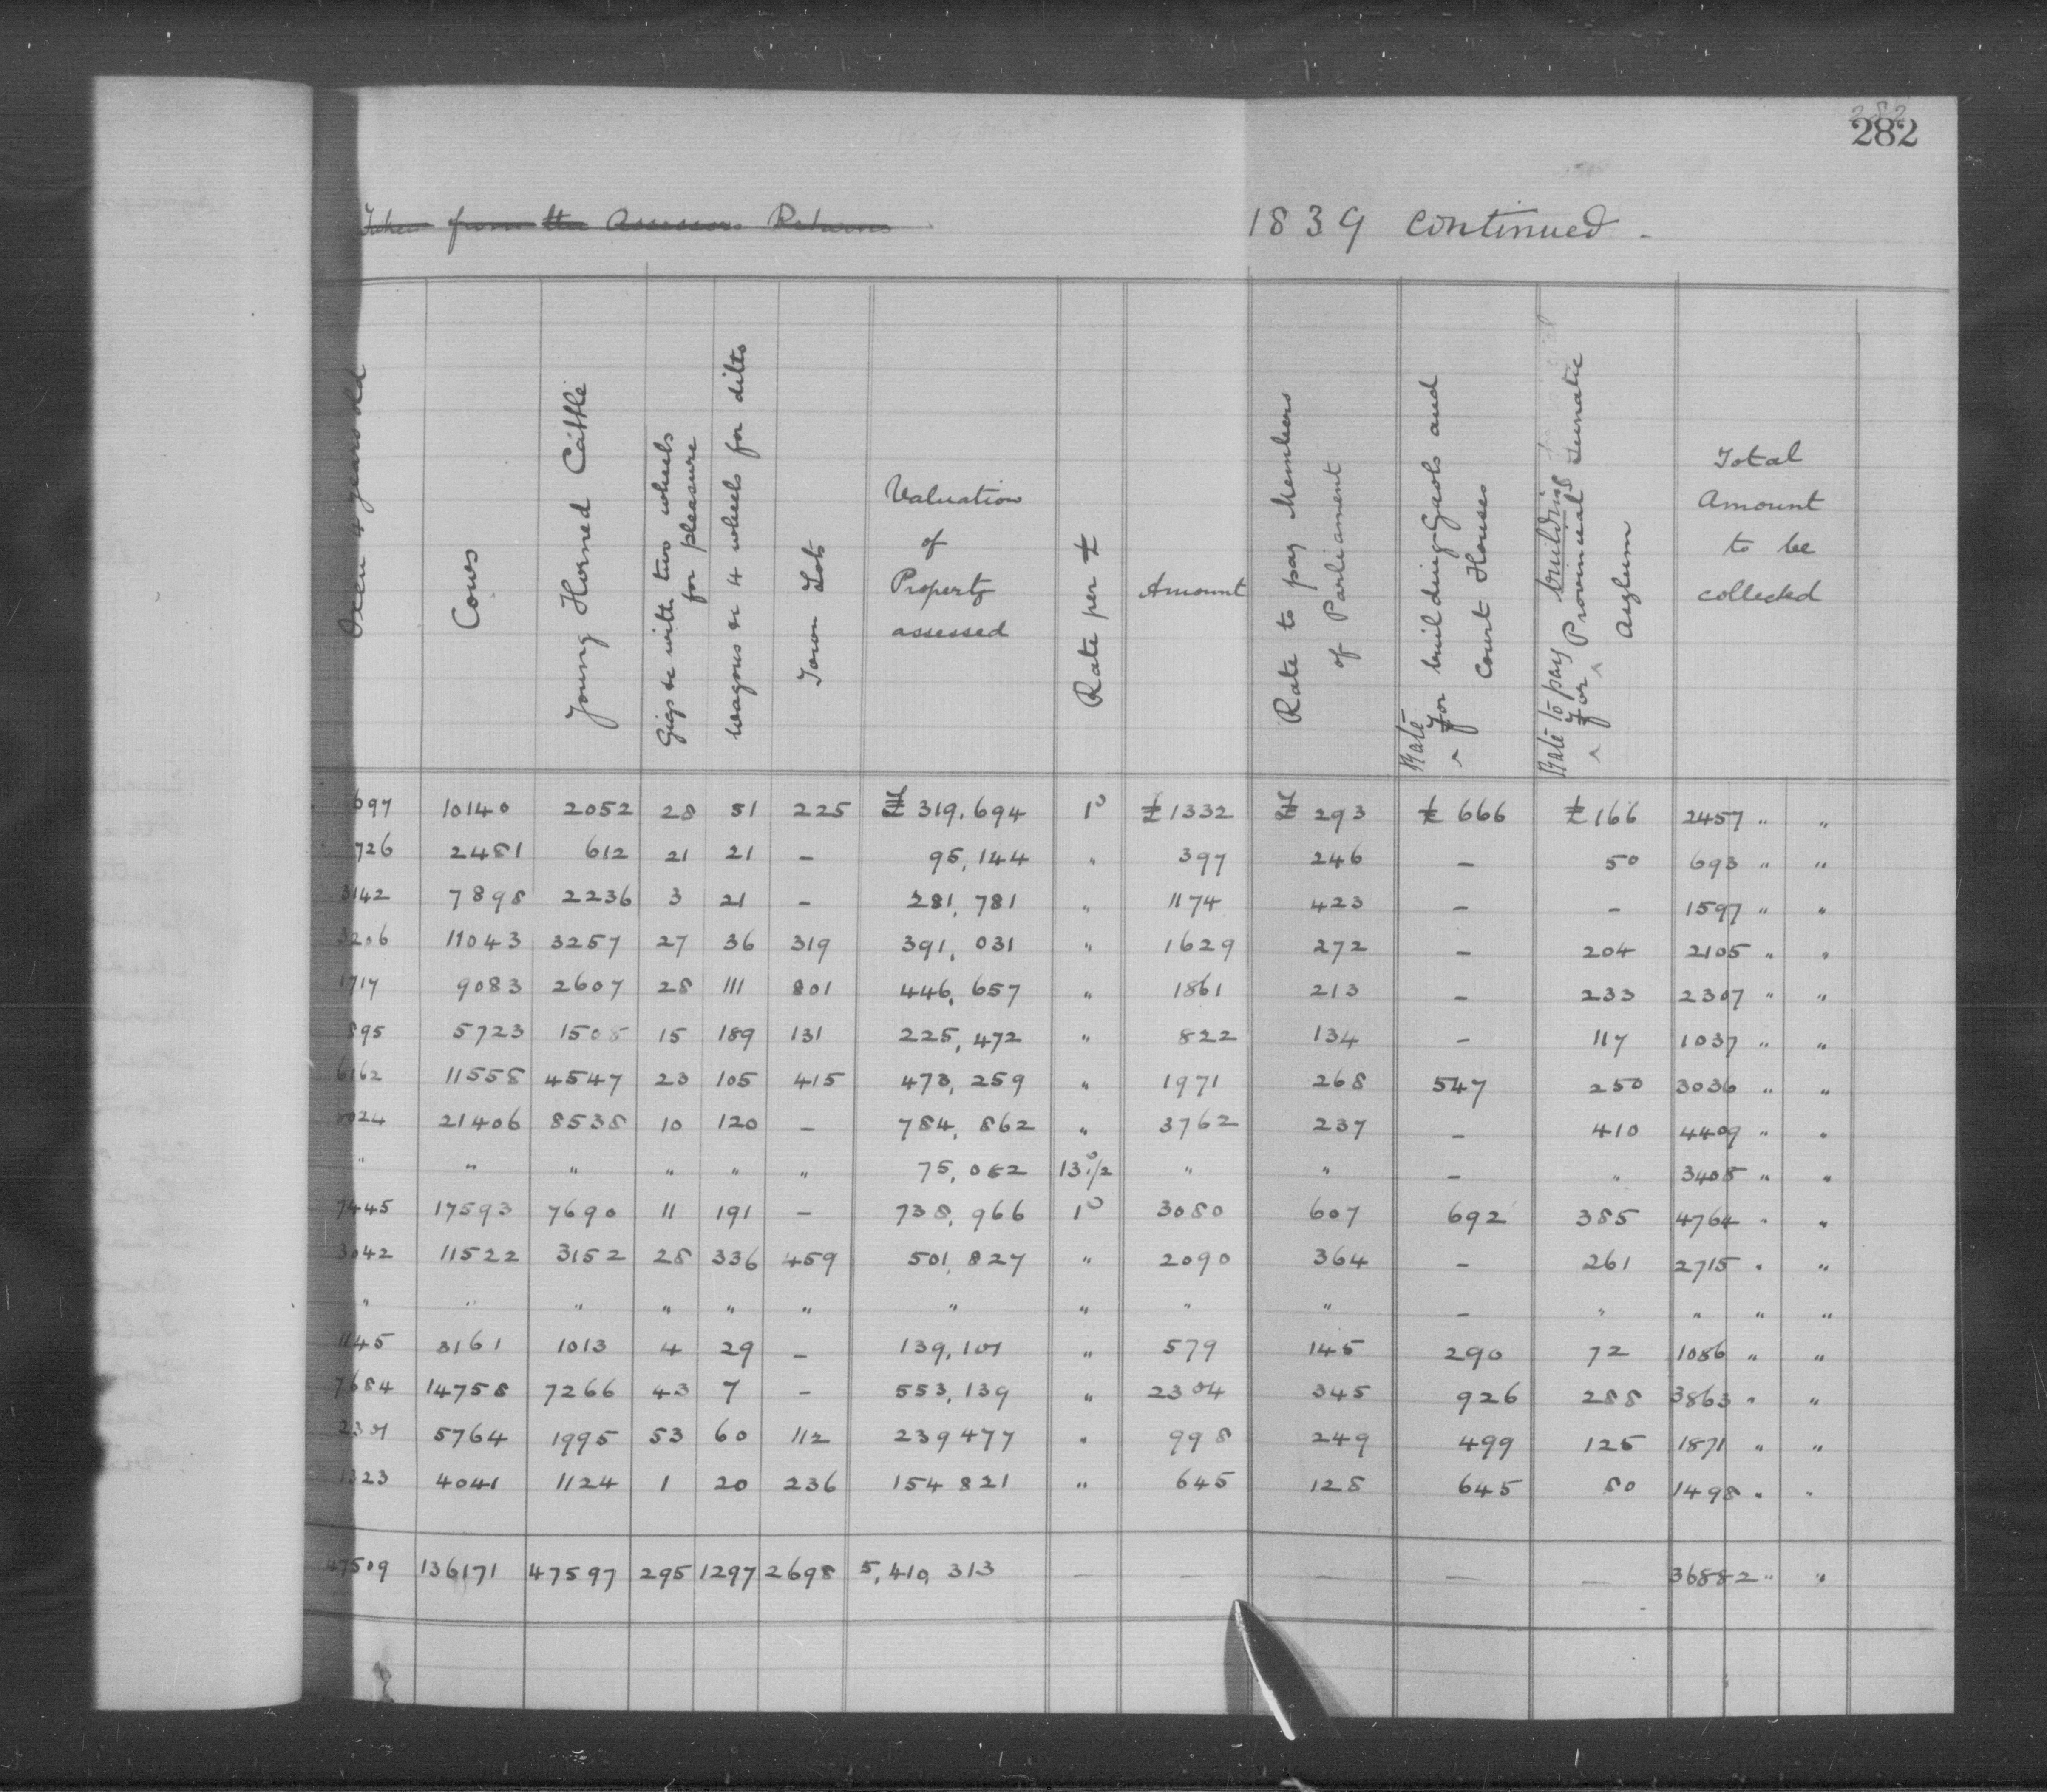 282
282
Taken from the Assessors Returns
1839 continued.
Oxen 4 years old
Cows
Young Horned Cattle
Gigs &c with two wheels for pleasure
Wagons &c 4 wheels for ditto
Town Lots
Valuation of Property assessed
Rate per £
Amount
Rate to pay Members of Parliament
Rate for building Gaols and Court Houses
Rate to pay building for Provincial Lunatic Asylum
Total Amount to be collected
697 10140 2052 28 51 225 £ 319,694 1D £ 1332 £ 293 £ 666 £ 166 2457 " "
726 2481 612 21 21 - 95,144 " 397 246 - 50 693 " "
3142 7898 2236 3 21 - 281,781 " 1174 423 - - 1597 " "
3206 11043 3257 27 36 319 391,031 " 1629 272 - 204 2105 " "
1717 9083 2607 28 111 801 446,657 " 1861 213 - 233 2307 " "
895 5723 1508 15 189 131 225,472 " 822 134 - 117 1037 " "
6162 11558 4547 23 105 415 473,259 " 1971 268 547 250 3036 " "
8024 21406 8538 10 120 - 784,862 " 3762 237 - 410 4409 " "
" " " " " " 75,062 13D/2 " " - " 3408 " "
7445 17593 7690 11 191 - 738,966 1D 3080 607 692 385 4764 " "
3042 11522 3152 28 336 459 501,827 " 2090 364 - 261 2715 " "
" " " " " " " " " " - " " " "
1145 3161 1013 4 29 - 139,101 " 579 145 290 72 1086 " "
7684 14758 7266 43 7 - 553,139 " 2304 345 926 288 3863 " "
2301 5764 1995 53 60 112 239477 " 998 249 499 125 1871 " "
1323 4041 1124 1 20 236 154821 " 645 128 645 80 1498 " "
47509 136171 47597 295 1297 2698 5,410,313 - - - - - 36882 " "